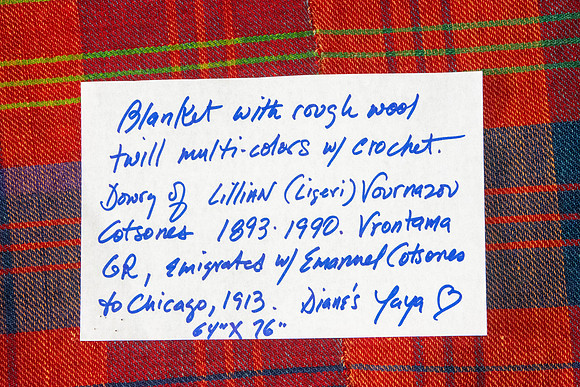 Blanket with rough wool
twill multi-colors w/ crochet.
Dowry of Lillian (Ligeri) Vournazou
Cotsones 1893-1990. Vrontama
GR, emigrated w/ Emanuel Cotsones
to Chicago, 1913. Diane's Yaya ♡
64" X 76"